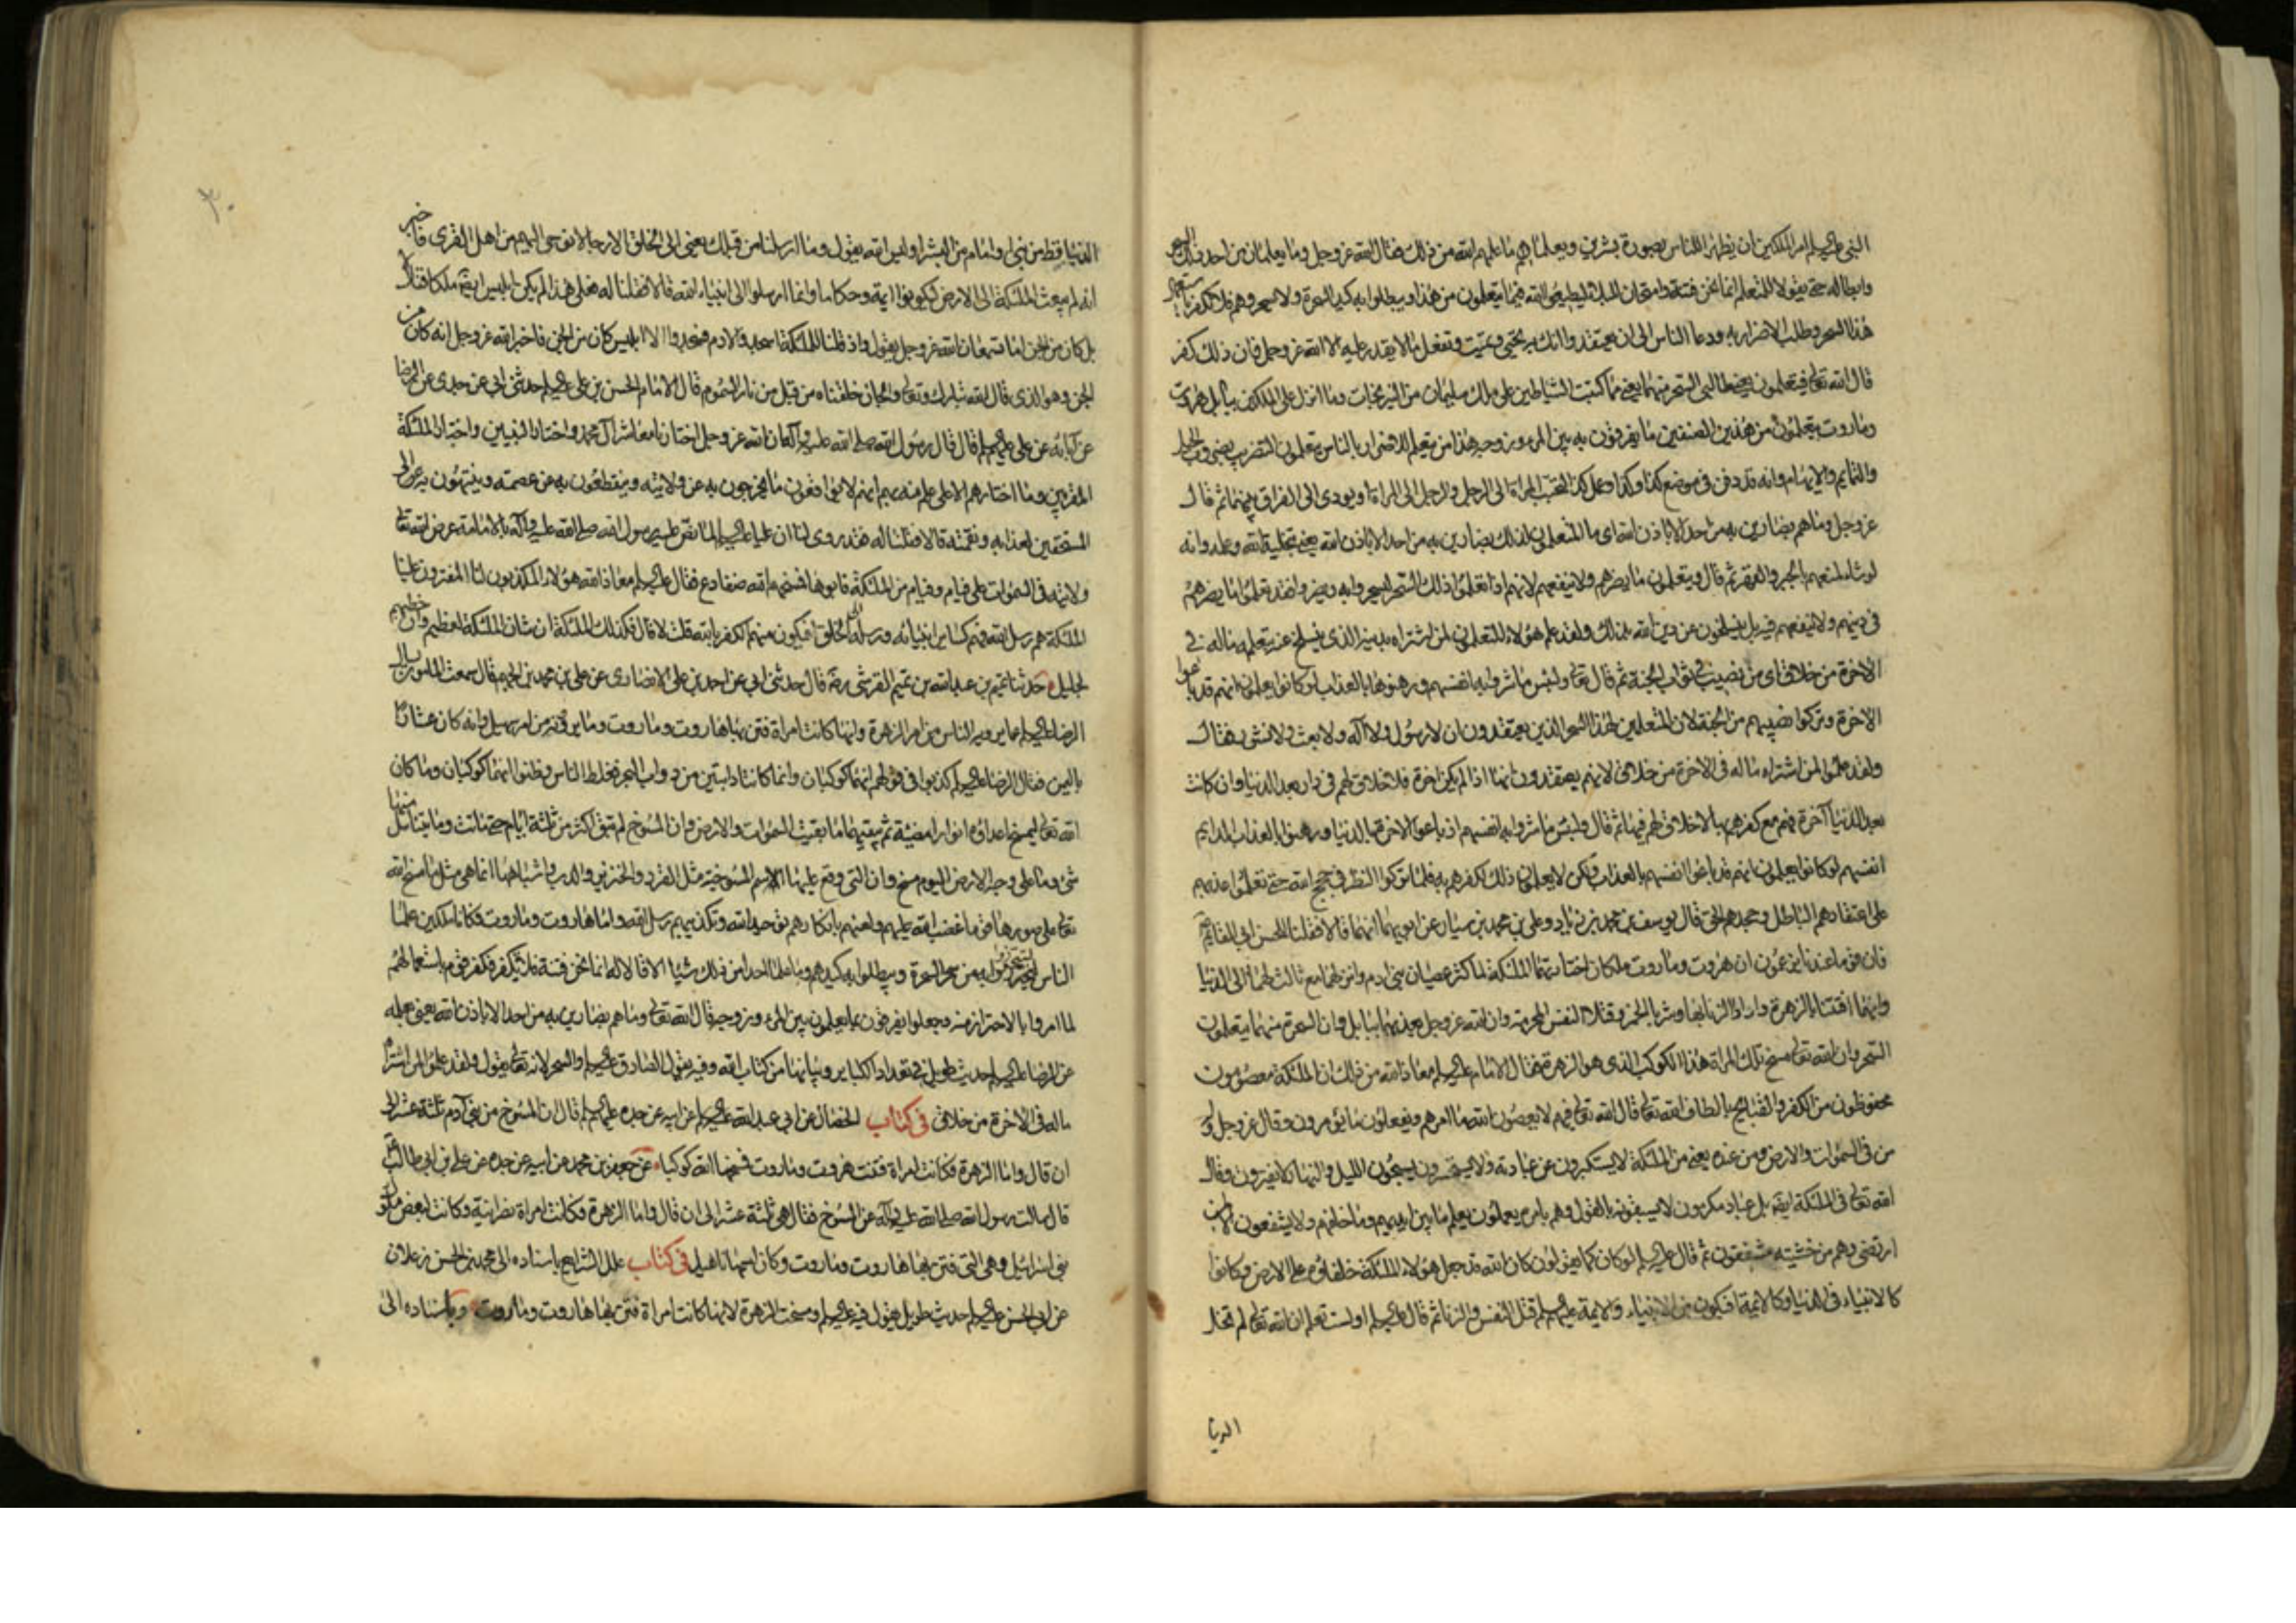 النبى عليه السلم امر الملكين ان يظهرا للناس بصورة بشرين ويعلماهم ما علمهم الله من ذلك فقال الله عز وجل وما يعلمان من احد ذلك السحر
وابطاله حتى يقولا للمتعلم انما نحن فتنة وامتحان للعباد ليطيعوا الله فيما يتعلمون من هذا ويبطلوا به كيد السحرة ولا يسحروهم فلا تكفر باستعمال
هذا السحر وطلب الاضرار به ودعا الناس الى ان يعتقدوا انك به تحيى وتميت وتفعل ما لا يقدر عليه الا الله عز وجل فان ذلك كفر
قال الله تعالى فيتعلمون يعنى طالبى السحر منهما يعنى مما كتبت الشياطين على ملك سليمان من النيرنجات وما انزل على الملكين ببابل هاروت
وماروت يتعلمون من هذين الصنفين ما يفرقون به بين المرء وزوجه هذا من يتعلم للاضرار بالناس يتعلمون التضريب بضروب الحيل
والتمايم والايهام وانه قد دفن فى موضع كذا وكذا وعمل كذا ليحبب المراة الى الرجل والرجل الى المراة او يودى الى الفراق بينهما ثم قال
عز وجل وما هم بضارين به من احد الا باذن الله اى ما المتعلمون لذلك بضارين به من احد الا باذن الله يعنى بتخلية الله وعلمه وانه
لو شاء لمنعهم بالجبر والقهر ثم قال ويتعلمون ما يضرهم ولا ينفعهم لانهم اذا تعلموا ذلك السحر ليسحروا به ويضروا فقد تعلموا ما يضرهم
فى دينهم ولا ينفعهم فيه بل ينسلخون عن دين الله بذلك ولقد علم هؤلاء المتعلمون لمن اشتراه بدينه الذى ينسلخ عنه بتعلمه ما له فى
الاخرة من خلاق اى من نصيب فى ثواب الجنة ثم قال تعالى ولبئس ما شروا به انفسهم ورهنوها بالعذاب لو كانوا يعلمون انهم قد باعوا
الاخرة وتركوا نصيبهم من الجنة لان المتعلمين لهذا السحر الذين يعتقدون ان لا رسول ولا اله ولا بعث ولا نشور فقال
ولقد علموا لمن اشتراه ما له فى الاخرة من خلاق لانهم يعتقدون انها اذا لم يكن اخرة فلا خلاق لهم فى دار بعد الدنيا وان كانت
بعد الدنيا آخرة فهم مع كفرهم بها لا خلاق لهم فيها ثم قال ولبئس ما شروا به انفسهم اذ باعوا الاخرة بالدنيا ورهنوا بالعذاب الدايم
انفسهم لو كانوا يعلمون انهم قد باعوا انفسهم بالعذاب ولكن لا يعلمون ذلك لكفرهم به فلما تركوا النظر فى حجج الله حتى تعلموا عذبهم
على اعتقادهم الباطل وجحدهم الحق قال يوسف بن محمد بن زياد وعلى بن محمد بن سيار عن ابويهما انهما قالا فقلنا للحسن ابى القائم
فان قوما عندنا يزعمون ان هروت وماروت ملكان اختارتهما الملئكة لما كثر عصيان بنى ادم وانزلهما مع ثالث لهما الى الدنيا
وانهما افتتنا بالزهرة وارادا الزنا بها وشربا الخمر وقتلا النفس المحرمة وان الله عز وجل يعذبهما ببابل وان السحرة منهما يتعلمون
السحر وان الله تعالى مسخ تلك المراة هذا الكوكب الذى هو الزهرة فقال الامام عليه السلم معاذ الله من ذلك ان الملئكة معصومون
محفوظون من الكفر والقبايح بالطاف الله تعالى قال الله تعالى فيهم لا يعصون الله ما امرهم ويفعلون ما يؤمرون وقال عز وجل وله
من فى السموات والارض ومن عنده يعنى من الملئكة لا يستكبرون عن عبادته ولا يستحسرون يسبحون الليل والنهار لا يفترون وقال
الله تعالى فى الملئكة ايضا بل عباد مكرمون لا يسبقونه بالقول وهم بامره يعملون يعلم ما بين ايديهم وما خلفهم ولا يشفعون الا لمن
ارتضى وهم من خشيته مشفقون ثم قال عليه السلم لو كان كما يقولون كان الله قد جعل هؤلاء الملئكة خلفائه على الارض وكانوا
كالانبياء فى الدنيا وكالائمة افيكون من الانبياء والائمة عليهم السلم قتل النفس والزنا ثم قال عليه السلم اولست تعلم ان الله تعالى لم يخل
الدنيا
٣٠
الدنيا قط من نبى او امام من البشر اوليس الله يقول وما ارسلنا من قبلك يعنى الى الخلق الا رجالا نوحى اليهم من اهل القرى فاخبر
انه لم يبعث الملئكة الى الارض ليكونوا ائمة وحكاما وانما ارسلوا الى انبياء الله قالا فقلنا له فعلى هذا لم يكن ابليس ايضا ملكا فقال لا
بل كان من الجن اما تسمعان الله عز وجل يقول واذ قلنا للملئكة اسجدوا لادم فسجدوا الا ابليس كان من الجن فاخبر الله عز وجل انه كان من
الجن وهو الذى قال الله تبارك وتعالى والجان خلقناه من قبل من نار السموم قال الامام الحسن بن على عليه السلم حدثنى ابى عن جدى عن الرضا
عن آبائه عن على عليهم السلم قال قال رسول الله صلى الله عليه واله ان الله عز وجل اختارنا معاشر آل محمد واختار النبيين واختار الملئكة
المقربين وما اختارهم الا على علم منه بهم انهم لا يواقعون ما يخرجون به عن ولايته وينقطعون به عن عصمته وينتهون به الى
المستحقين لعذابه ونقمته قالا فقلنا له فقد روى لنا ان عليا عليه السلم لما نص عليه رسول الله صلى الله عليه وآله بالامامة عرض الله تعالى
ولايته فى السموات على فيام وفيام من الملئكة فابوها فمسخهم الله ضفادع فقال عليه السلم معاذ الله هؤلاء المكذبون لنا المفترون علينا
الملئكة هم رسل الله فهم كساير انبيائه ورسله الى الخلق افيكون منهم الكفر بالله قلت لا قال فكذلك الملئكة ان شان الملئكة لعظيم وان خطبهم
لجليل حدثنا تميم بن عبد الله بن تميم القرشى رضه قال حدثنى ابى عن احمد بن على الانصارى عن على بن محمد بن الجهم قال سمعت المامون يسال
الرضا عليه السلم عما يرويه الناس من امر الزهرة وانها كانت امراة فتن بها هاروت وماروت وما يروونه من امر سهيل وانه كان عشارا
باليمن فقال الرضا عليه السلم كذبوا فى قولهم انهما كوكبان وانما كانتا دابتين من دواب البحر فغلط الناس وظنوا انهما كوكبان وما كان
الله تعالى ليمسخ اعداؤه انوارا مضيئة ثم يبقيهما ما بقيت السموات والارض وان المسوخ لم تبق اكثر من ثلثة ايام حتى ماتت وما يتناسل منها
شئ وما على وجه الارض اليوم مسخ وان التى وقع عليها الاسم المسوخية مثل القرد والخنزير والدب واشباهها انما هى مثل ما مسخ الله
تعالى على صورها قوما غضب الله عليهم ولعنهم بانكارهم توحيد الله وتكذيبهم رسل الله واما هاروت وماروت فكانا ملكين علما
الناس السحر ليتحرزوا به من سحر السحرة ويبطلوا به كيدهم وما علما احدا من ذلك شيئا الا قالا له انما نحن فتنة فلا تكفر فكفر قوم باستعمالهم
لما امروا بالاحتراز منه وجعلوا يفرقون بما يعلمون بين المرء وزوجه قال الله تعالى وما هم بضارين به من احد الا باذن الله يعنى بعلمه
عن الرضا عليه السلم حديث طويل فى تعداد الكباير وبيانها من كتاب الله وفيه يقول الصادق عليه السلم والسحر لانه تعالى يقول ولقد علموا لمن اشتراه
ما له فى الاخرة من خلاق فى كتاب الخصال عن ابى عبد الله عليه السلم عن ابيه عن جده عليهم السلم قال ان المسوخ من بنى آدم ثلثة عشر الى
ان قال واما الزهرة فكانت امراة فتنت هروت وماروت فمسخها الله كوكبا عن جعفر بن محمد عن ابيه عن جده عن على بن ابى طالب
قال سالت رسول الله صلى الله عليه وآله عن المسوخ فقال هى ثلثة عشر الى ان قال واما الزهرة فكانت امراة نصرانية وكانت لبعض ملوك
بنى اسرائيل وهى التى فتن بها هاروت وماروت وكان اسمها ناهيل فى كتاب علل الشرايع باسناده الى محمد بن الحسن زعلان
عن ابى الحسن عليه السلم حديث طويل يقول فيه عليه السلم ومسخت الزهرة لانها كانت امراة فتن بها هاروت وماروت وباسناده الى